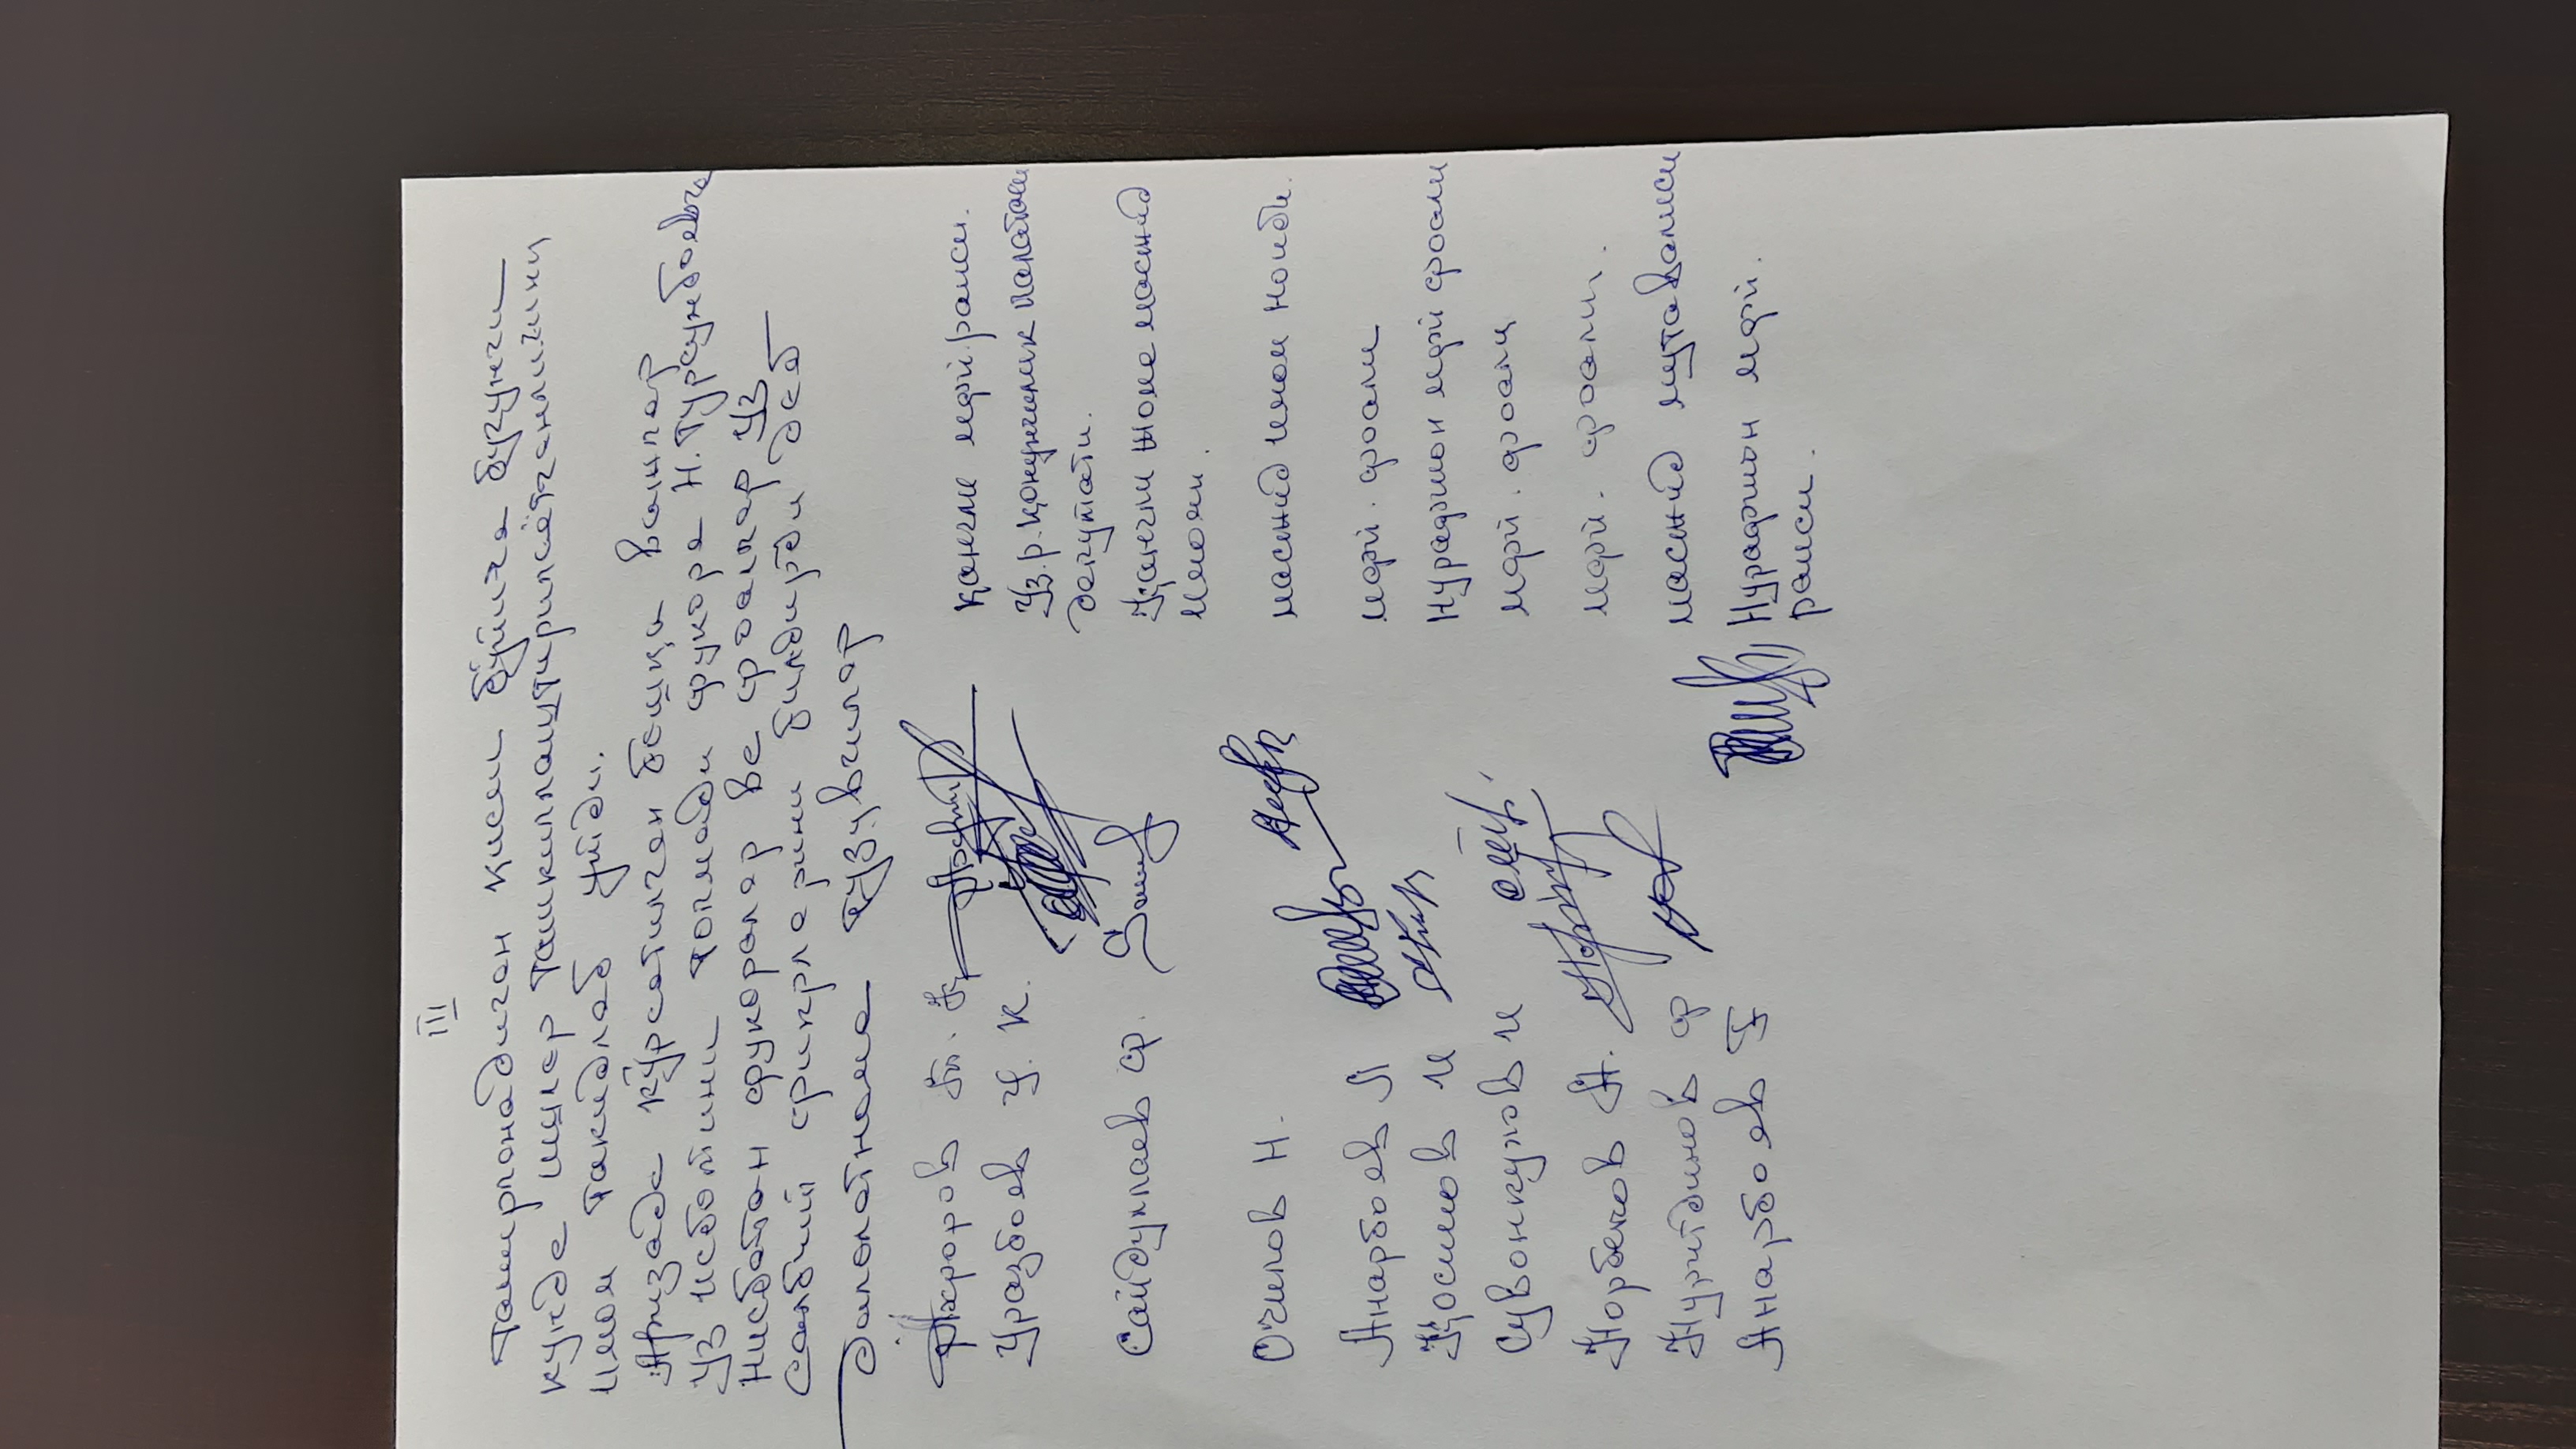 III
таъмирланадиган қисми бўйича бугунги
кунда ишлар ташкиллаштирилаётганлигини
имом такидлаб ўтди.
Аризада кўрсатилган бошқа важлар
уз исботини топмади фукоро Н. Турсунбоевга
нисбатан фукоролар ва фаоллар уз
салбий фикрларини билдирди деб
далолатнома тузувчилар
Ахроров Т. Қ
қанғли мфй. раиси.
Уразбоев У. К.
Уз. р. қонунчилик палатаси
депутати.
Сайдуллаев Ф.
Қанғли жоме масжид
имоми.
Очилов Н.
масжид имом ноиби.
Анарбоев Л
мфй. фаоли
Қосимов И
Нурафшон мфй фаоли
Сувонкулов И
мфй. фаоли
Норбеков А.
мфй. фаоли.
Нуритдинов Ф
масжид мутавалиси
Анарбоев Ғ
Нурафшон мфй.
раиси.